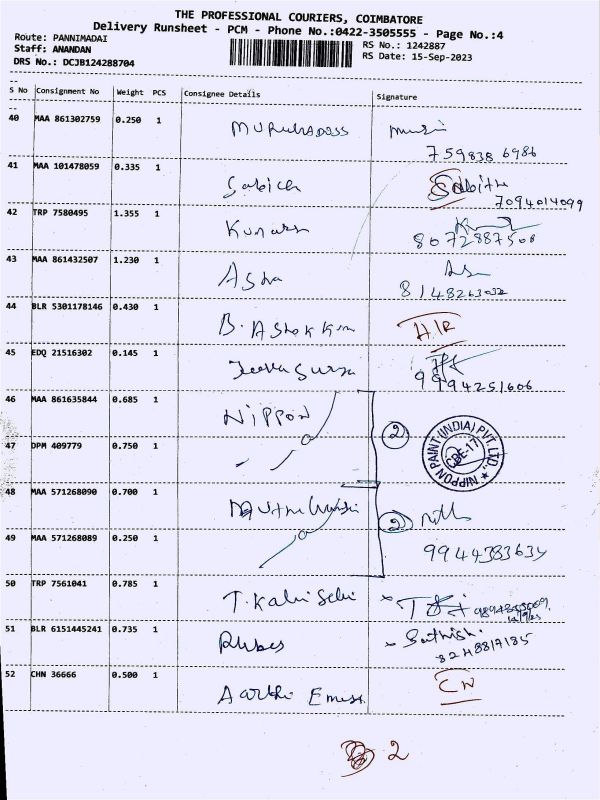 THE PROFESSIONAL COURIERS, COIMBATORE
Delivery Runsheet - PCM - Phone No.:0422-3505555 - Page No.:4
Route: PANNIMADAI
RS No.: 1242887
Staff: ANANDAN
RS Date: 15-Sep-2023
DRS No.: DCJB124288704
S No Consignment No Weight PCS Consignee Details Signature
40 MAA 861302759 0.250 1
41 MAA 101478059 0.335 1 Sabitha
7094014099
42 TRP 7580495 1.355 1
8072887508
43 MAA 861432507 1.230 1 Asha
8148263032
44 BLR 5301178146 0.430 1 B. Ashok H/R
45 EDQ 21516302 0.145 1
9994251606
46 MAA 861635844 0.685 1 NIPPON 2
NIPPON PAINT (INDIA) PVT. LTD. ★ CBE-17
47 DPM 409779 0.750 1
48 MAA 571268090 0.700 1 2
49 MAA 571268089 0.250 1 9944383634
50 TRP 7561041 0.785 1
51 BLR 6151445241 0.735 1 Sathish.
52 CHN 36666 0.500 1 CN
2